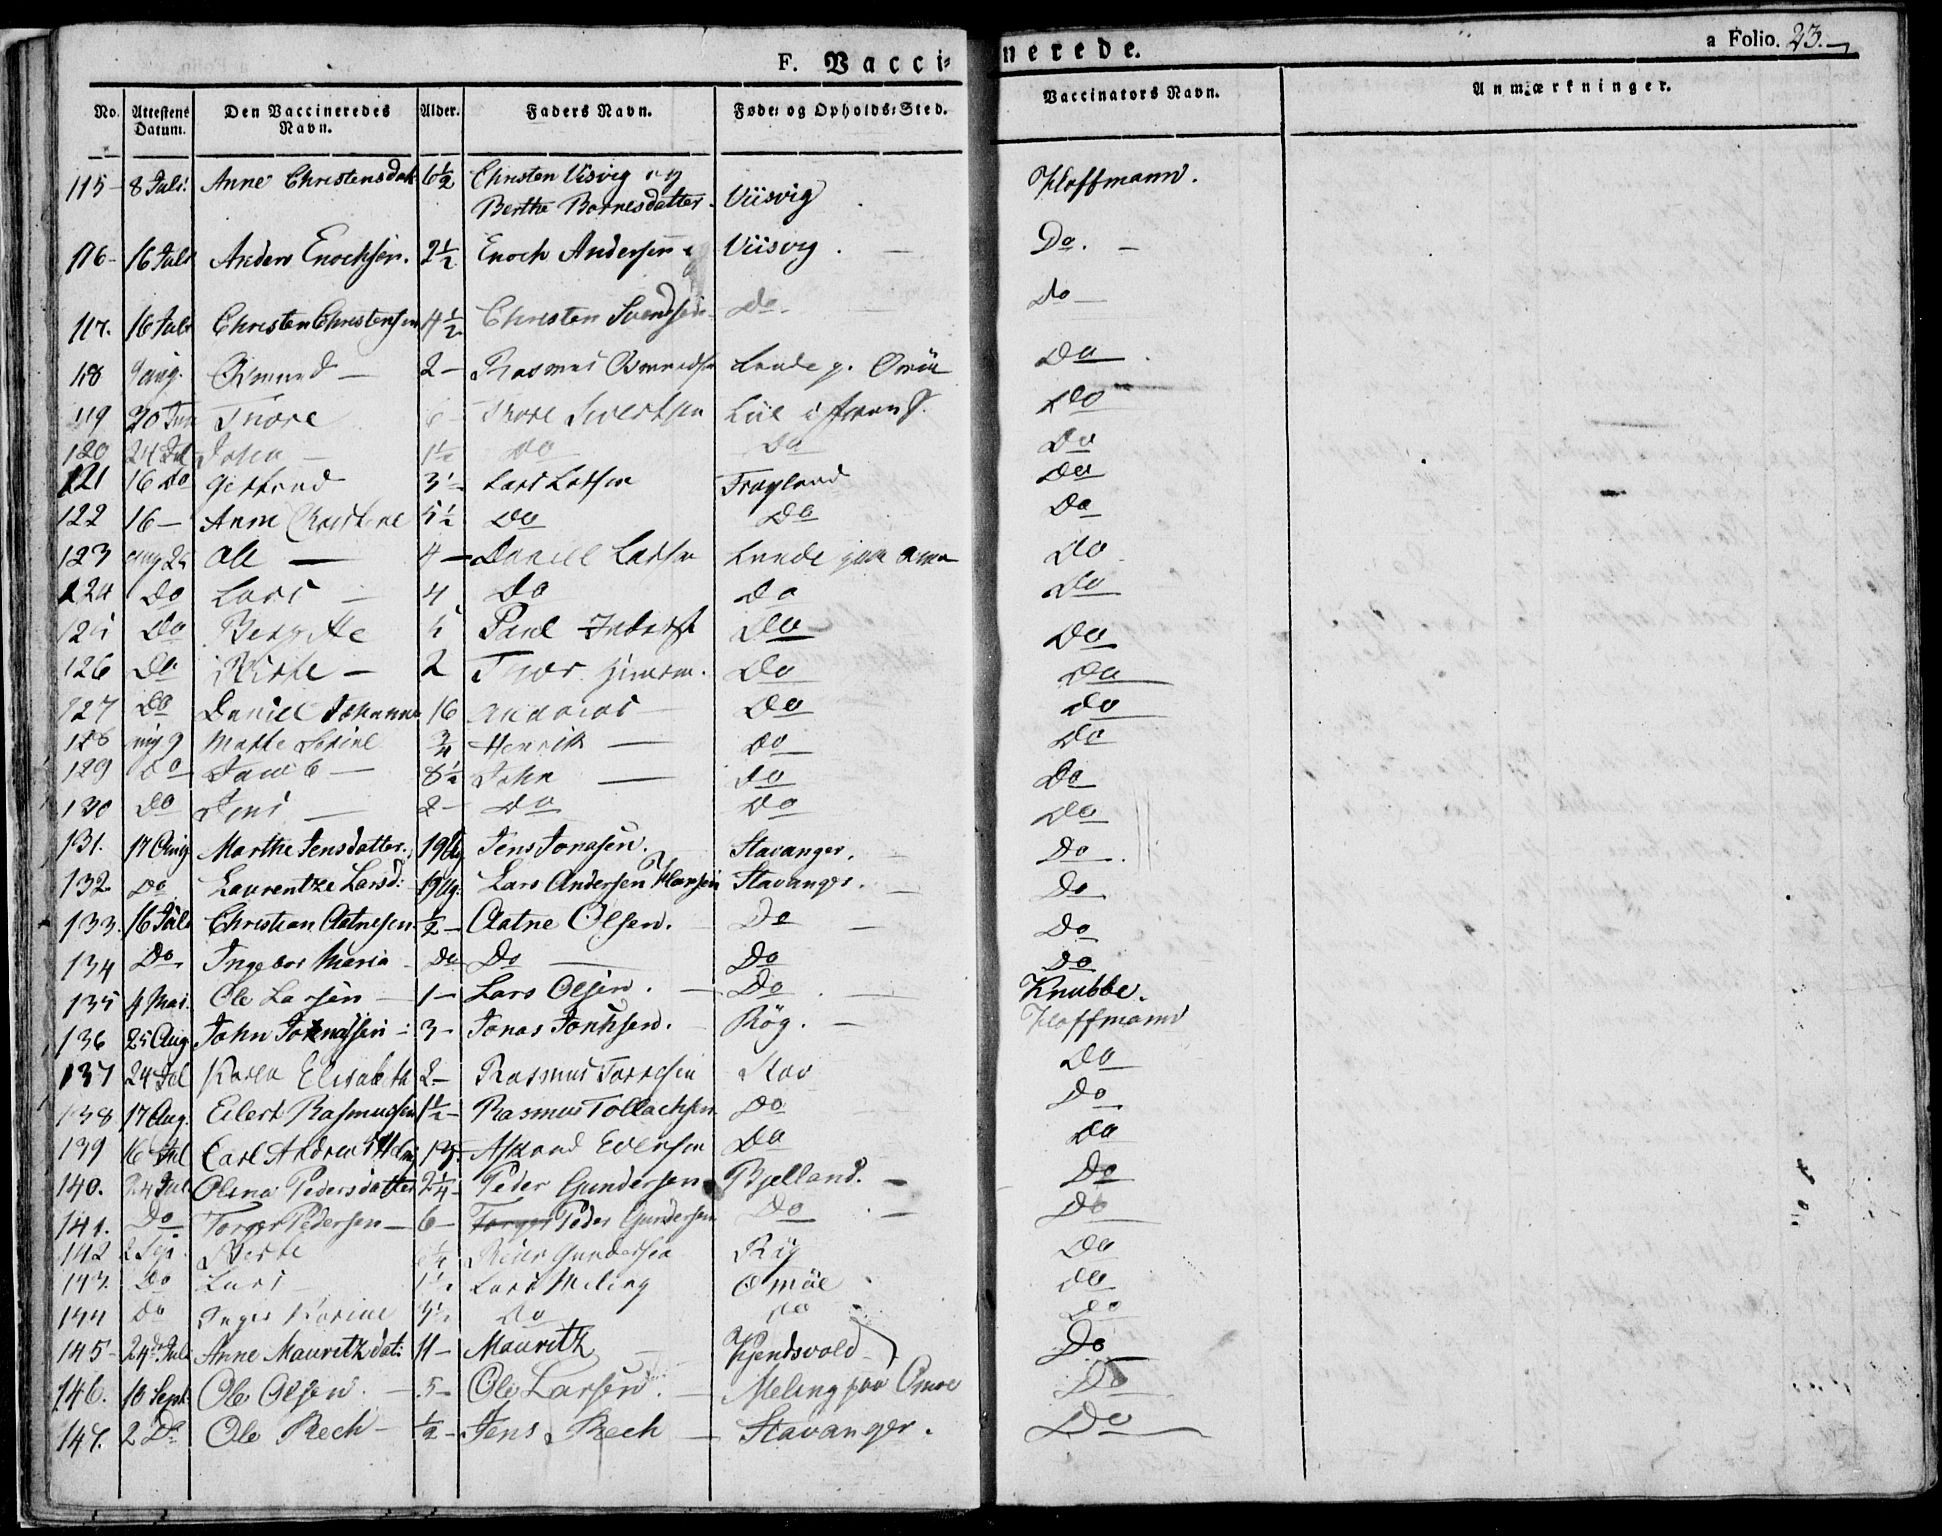 F. Vaccinerede. a Folio. 23.
No. Attestens Datum. Den Vaccineredes Navn. Alder. Faders Navn. Føde- og Opholds-Sted. Vaccinators Navn. Anmærkninger.
115 8 Juli Anne Christensdatt 6½ Christen Visvig og Berthe Barnesdatter. Viisvig Hoffmann.
116 16 Juli Anders Enochsen. 2½ Enoch Andersen Viisvig. Do.
117. 16 Juli Christen Christensen 4½ Christen Svendsen Do. Do
118 9 aug. Osmund 2 Rasmus Osmundsen Lende Do
119 30 Tore Tore Sivertsen Do
120 24 Jul Johan 1½ Do Do Do
121 16 Do Gertrud 3½ Lars Larsen Frøyland Do
122 16 Anne Christine 5½ Do Do Do
123 aug 25 Ole 4 Daniel Larsen Lende Do
124 Do Lars 4 Do Do Do
125 Do Bergitte 5 Paul Do Do
126 Do Berte 2 Do Do
127 Do Daniel Johannes 16 Andreas Do Do
128 aug 9 Marte Serine ¾ Henrik Do Do
129 Do Jacob 8½ John Do Do
130 Do Jens 2 Do Do Do
131. 17 Aug Marthe Jensdatter. 19 Ug Jens Jonasen. Stavanger. Do
132 Do Laurentze Larsd: 19 Ug. Lars Andersen Hansen Stavanger. Do
133. 16 Juli Christian Aatnesen ½ Aatne Olsen. Do Do
134 Do Ingebor Maria Do Do Do Do
135 4 Mai. Ole Larsen 1 Lars Olsen. Do Knubbe.
136 25 Aug John Jonassen 3 Jonas Johnsen. Røg. Hoffmann
137 24 Jul Karen Elisabeth 2 Rasmus Torresen Stav Do
138 17 Aug. Eilert Rasmussen 1½ Rasmus Tollachsen Do Do
139 16 Jul Carl Andreas Asland Evensen Do Do
140. 24 Jul Olena Pedersdatter 2¼ Peder Gundersen Bjelland. Do
141. Do Torger Pedersen 6 Torger Peder Gundersen Do Do
142 2 Sep. Berte Reier Gundersen Røg Do
143. Do Lars 1½ Lars Meling Omøe Do
144 Do Inger Karine 3½ Do Do Do
145 24 Juli Anne Mauritzdat: 11 Mauritz Kjendsvold Do
146. 10 Sept. Ole Olsen. 5 Ole Larsen. Meling paa Omøe Do
147. 2 Do Ole Rech ½ Jens Rech Stavanger. Do